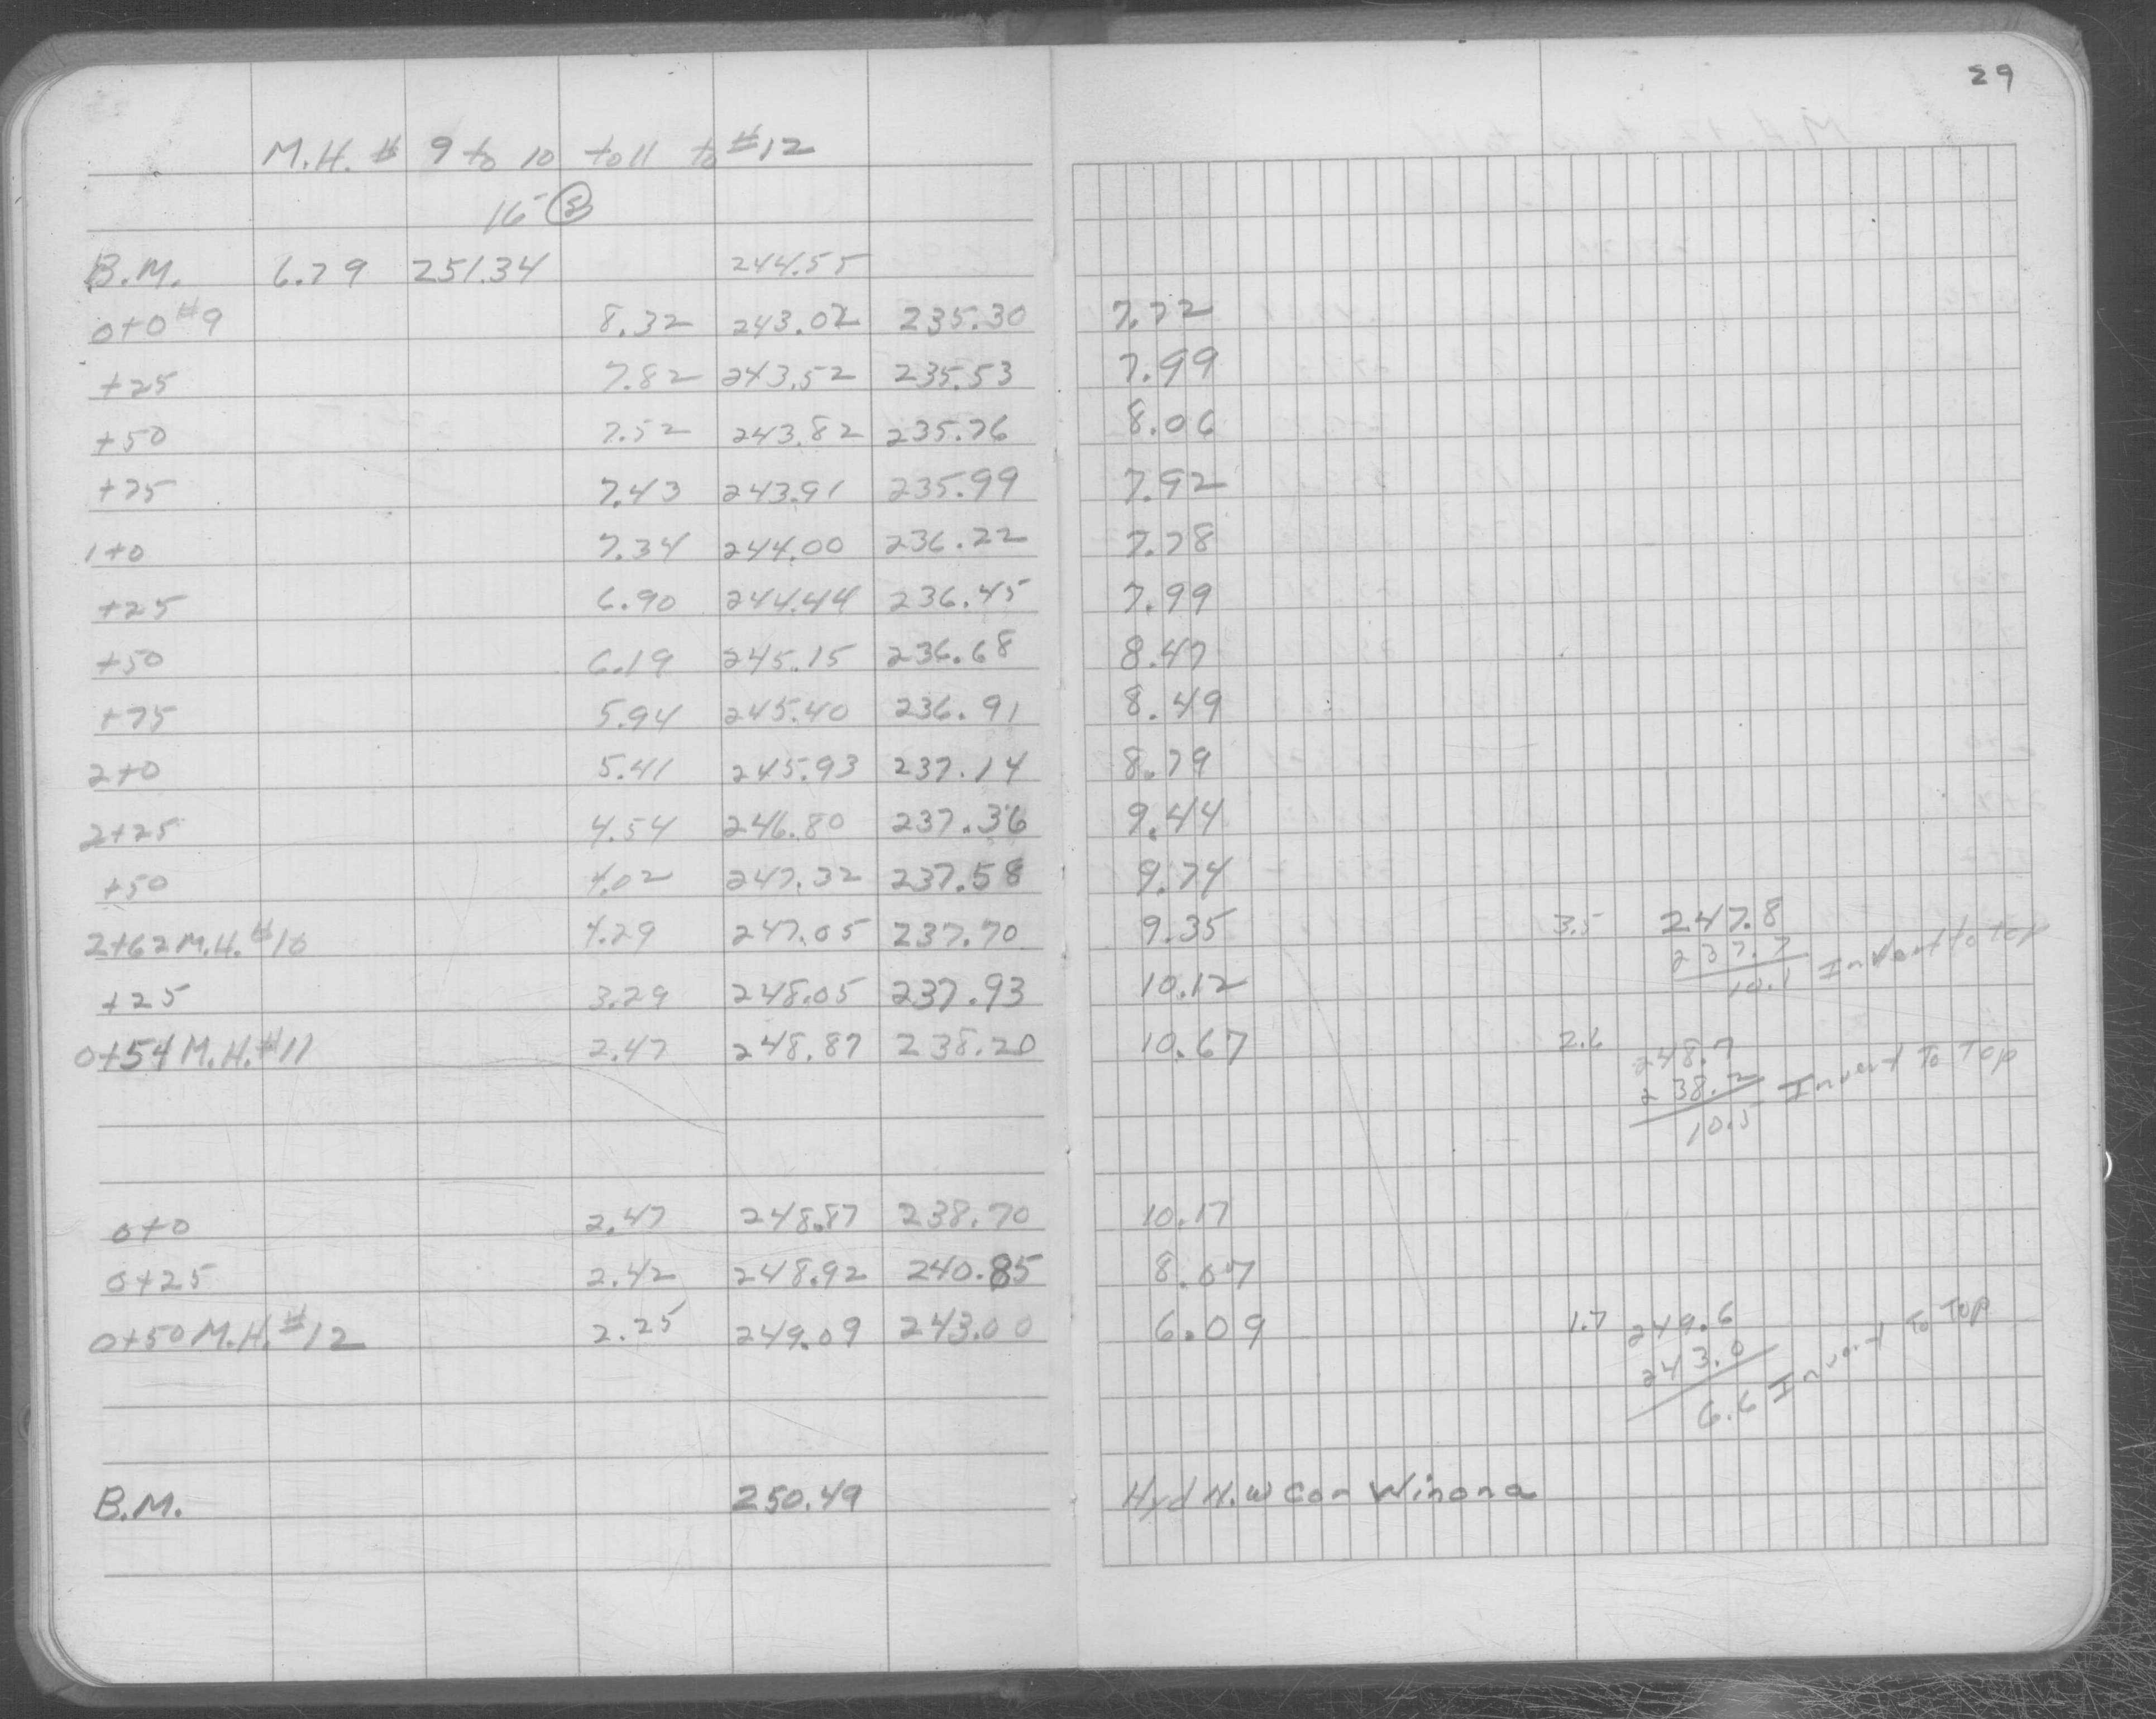 29
M.H. # 9 to 10 to 11 to #12
B.M. 6.79 251.34 244.55
0+0 #9 8.32 243.02 235.30 7.72
+25 7.82 243.52 235.53 7.99
+50 7.52 243.82 235.76 8.06
+75 7.43 243.91 235.99 7.92
1+0 7.34 244.00 236.22 7.78
+25 6.90 244.44 236.45 7.99
+50 6.19 245.15 236.68 8.47
+75 5.94 245.40 236.91 8.49
2+0 5.41 245.93 237.14 8.79
2+25 4.54 246.80 237.36 9.44
+50 4.02 247.32 237.58 9.74
2+62 M.H. #10 4.29 247.05 237.70 9.35 3.5 247.8
237.7
10.1 Invert to top
+25 3.29 248.05 237.93 10.12
0+54 M.H. #11 2.47 248.87 238.20 10.67 2.6 248.7
238.2
10.5 Invert To Top
0+0 2.47 248.87 238.70 10.17
0+25 2.42 248.92 240.85 8.07
0+50 M.H. #12 2.25 249.09 243.00 6.09 1.7 249.6
243.0
6.6 Invert To Top
B.M. 250.49 Hyd N.W Cor Winona